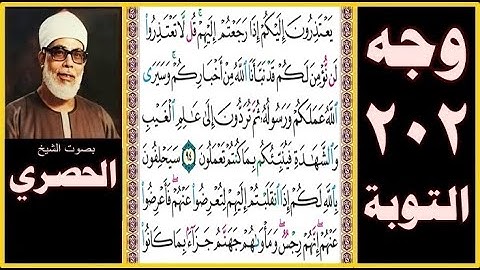 وجه
٢٠٢
التوبة
يَعْتَذِرُونَ إِلَيْكُمْ إِذَا رَجَعْتُمْ إِلَيْهِمْ ۚ قُل لَّا تَعْتَذِرُوا۟
لَن نُّؤْمِنَ لَكُمْ قَدْ نَبَّأَنَا ٱللَّهُ مِنْ أَخْبَارِكُمْ ۚ وَسَيَرَى
ٱللَّهُ عَمَلَكُمْ وَرَسُولُهُۥ ثُمَّ تُرَدُّونَ إِلَىٰ عَٰلِمِ ٱلْغَيْبِ
وَٱلشَّهَٰدَةِ فَيُنَبِّئُكُم بِمَا كُنتُمْ تَعْمَلُونَ ٩٤ سَيَحْلِفُونَ
بِٱللَّهِ لَكُمْ إِذَا ٱنقَلَبْتُمْ إِلَيْهِمْ لِتُعْرِضُوا۟ عَنْهُمْ ۖ فَأَعْرِضُوا۟
عَنْهُمْ ۖ إِنَّهُمْ رِجْسٌ ۖ وَمَأْوَىٰهُمْ جَهَنَّمُ جَزَآءًۢ بِمَا كَانُوا۟
بصوت الشيخ
الحصري